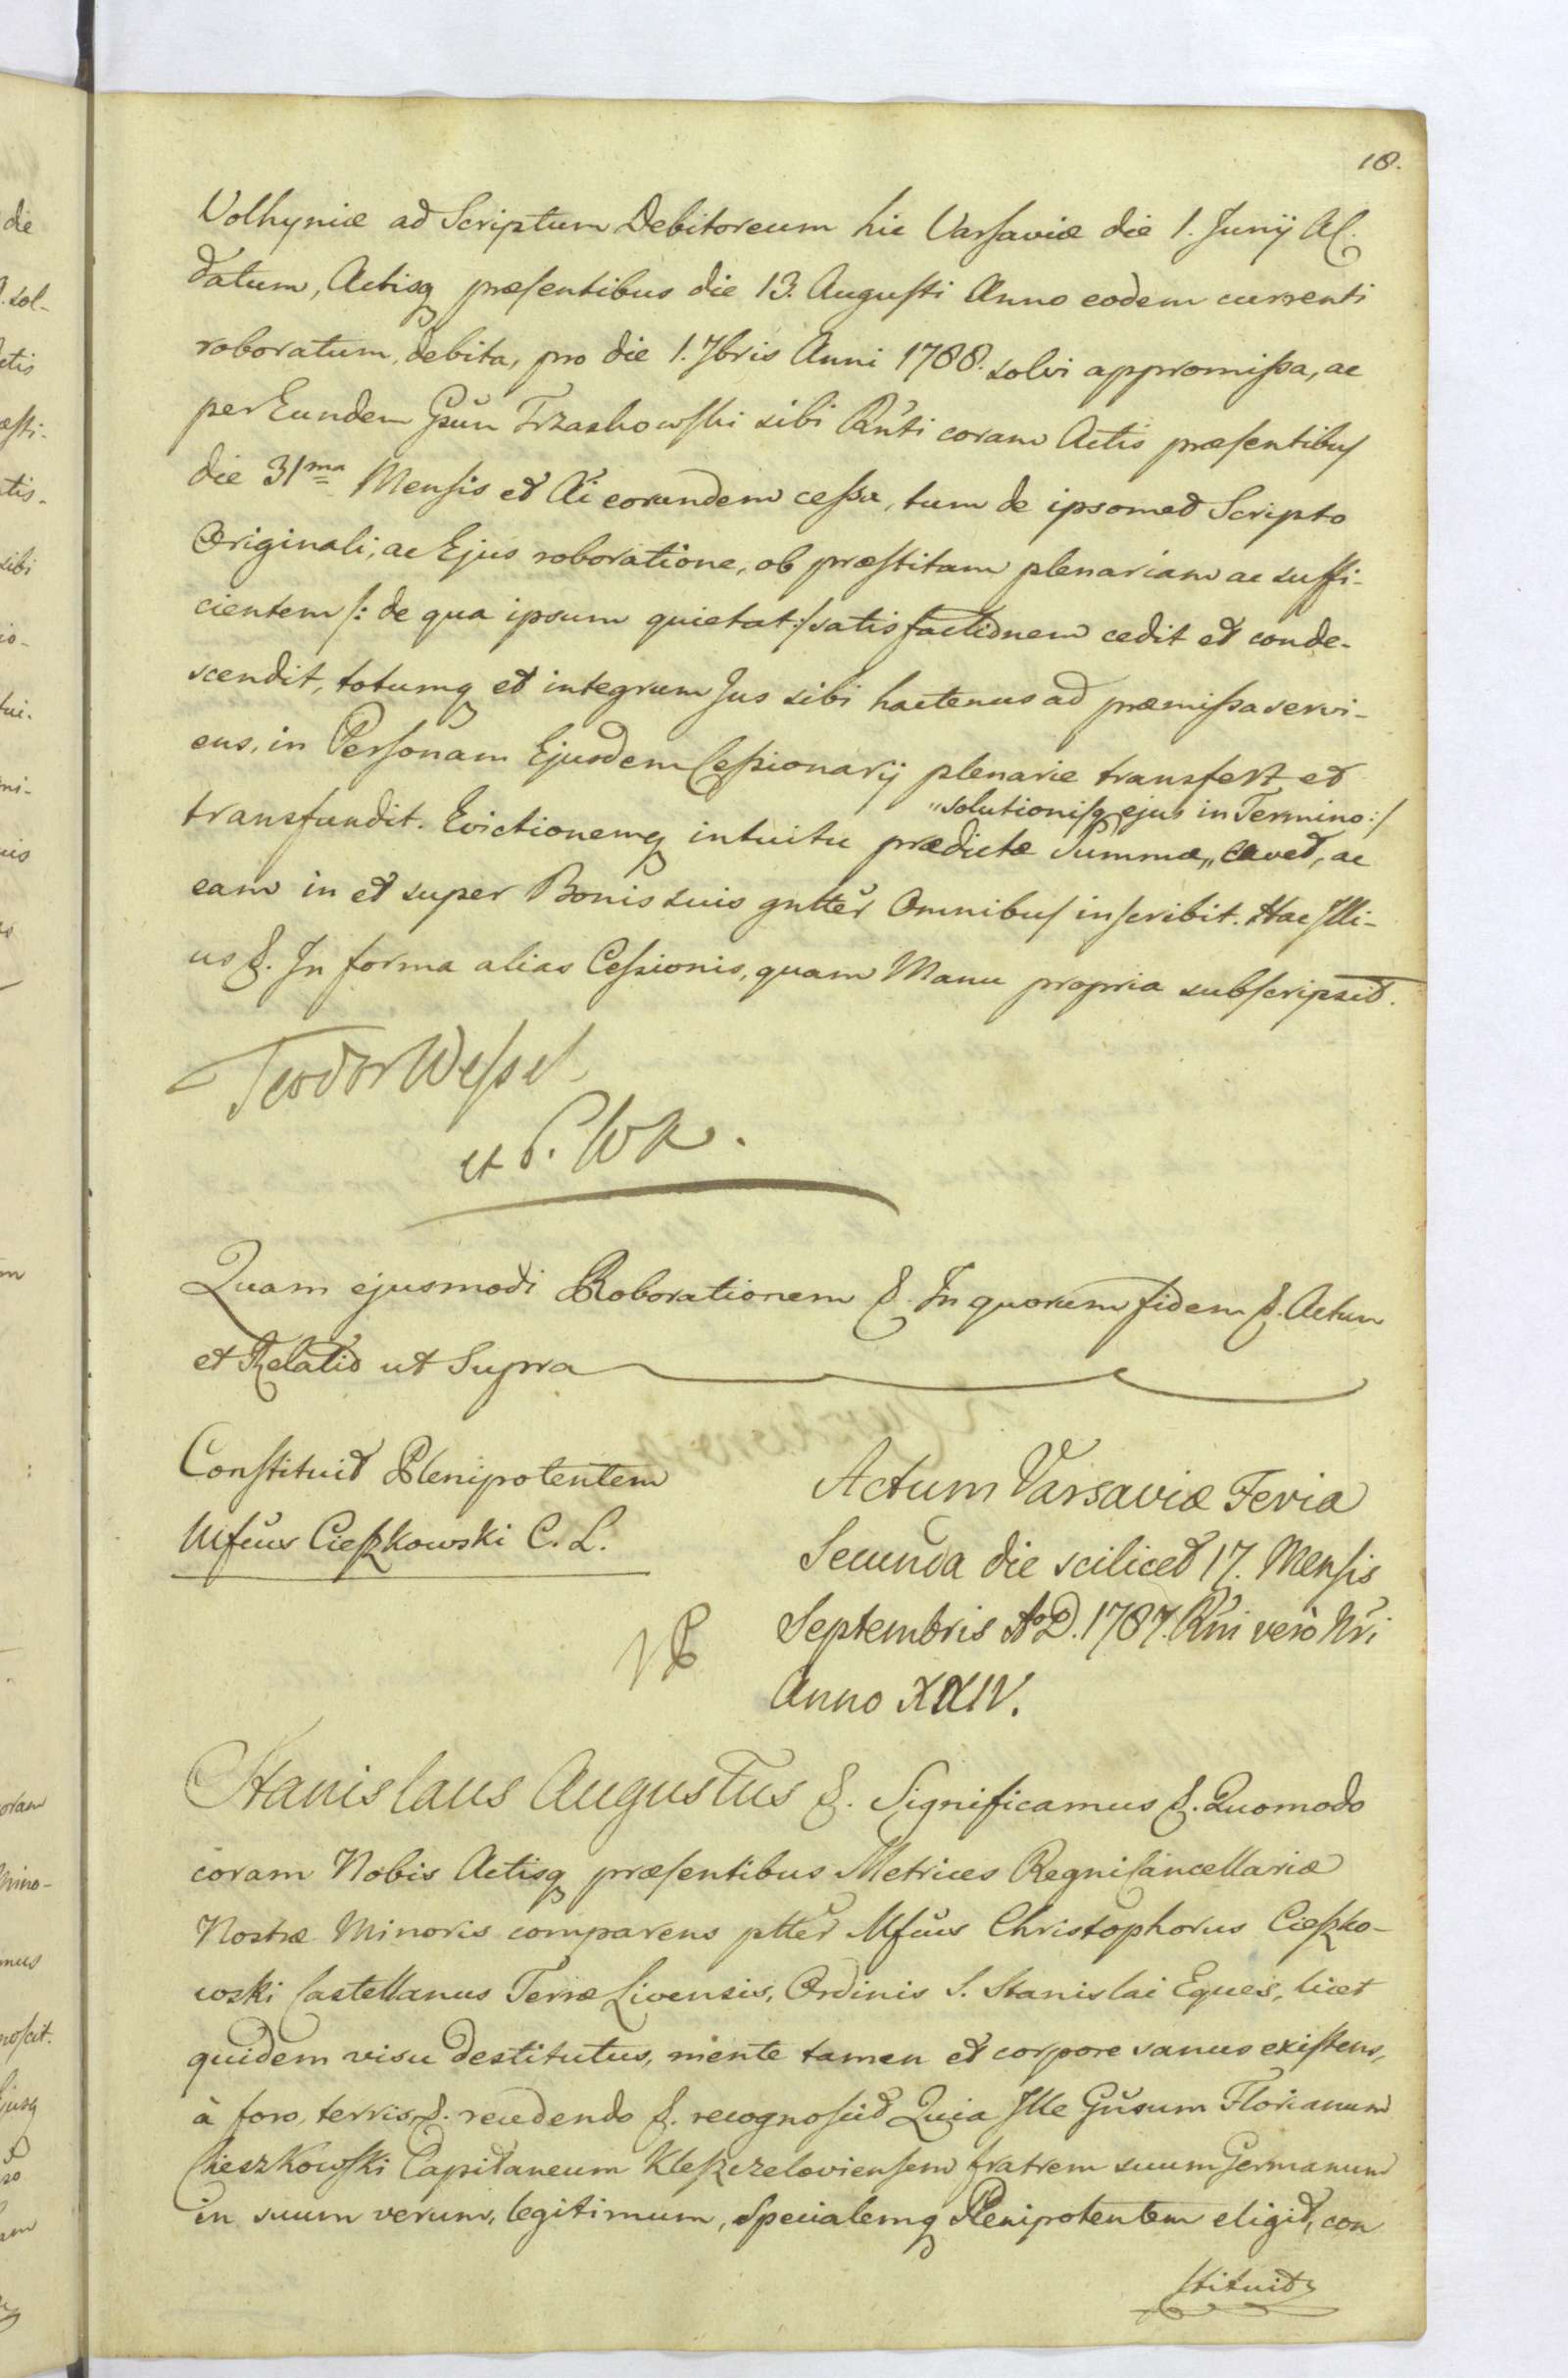 18.
Volhyniæ ad Scriptum Debitoreum hic Varſaviæ die 1. Junÿ AC.
datum, Actisq præſentibus die 13. Auguſti Anno eodem currenti
roboratum, debita, pro die 1. 7bris Anni 1788. solvi appromiſsa, ac
per Eundem Gsūn Trzaskowſki sibi Rn̄ti coram Actis præſentibuſ
die 31ma Menſis et Ai eorundem ceſsa, tum de ipsomet Scripto
Originali, ac Ejus roboratione, ob præſtitam plenariam ac suffi-
cientem /: de qua ipsum quietat :/ satisfactionem cedit et conde-
scendit, totumq et integrum Jus sibi hactenus ad præmiſsa servi-
ens, in Perſonam Ejusdem Ceſsionarÿ plenarie transfert et
„solutioniſq ejus in Termino :/
transfundit. Evictionemq intuitu prædictæ Summæ „ cavet, ac
eam in et super Bonis suis gntter Omnibuſ inſcribit. Hac Illi-
us &. In forma alias Ceſsionis, quam Manu propria subſcripsit.
Teodor Weſsel
Quam ejusmodi Roborationem &. In quorum fidem &. Actum
et Relatio ut Supra
Conſtituit Plenipotentem
Mfcus Cieſzkowski C. L.
Actum Varsaviæ Feria
Secunda die scilicet 17. Menſis
Septembris Ao D. 1787. Rn̄i vero Nr̄i
Anno XXIV.
Stanislaus Augustus &. Significamus &. Quomodo
coram Nobis Actisq præſentibus Metrices Regni Cancellariæ
Nostræ Minoris comparens ptter Mfcus Christophorus Cieſzko-
wski Castellanus Terræ Livensis, Ordinis S. Stanislai Eques, licet
quidem visu destitutus, mente tamen et corpore sanus exiſtens,
à foro, terris &. recedendo &. recognoſcit Quia Ille Gn̄sum Florianum
CieszKowſki Capitaneum Kleſzczelovienſem fratrem suum Germanum
in suum verum, legitimum, Specialemq Plenipotentem eligit, con
ſtituit